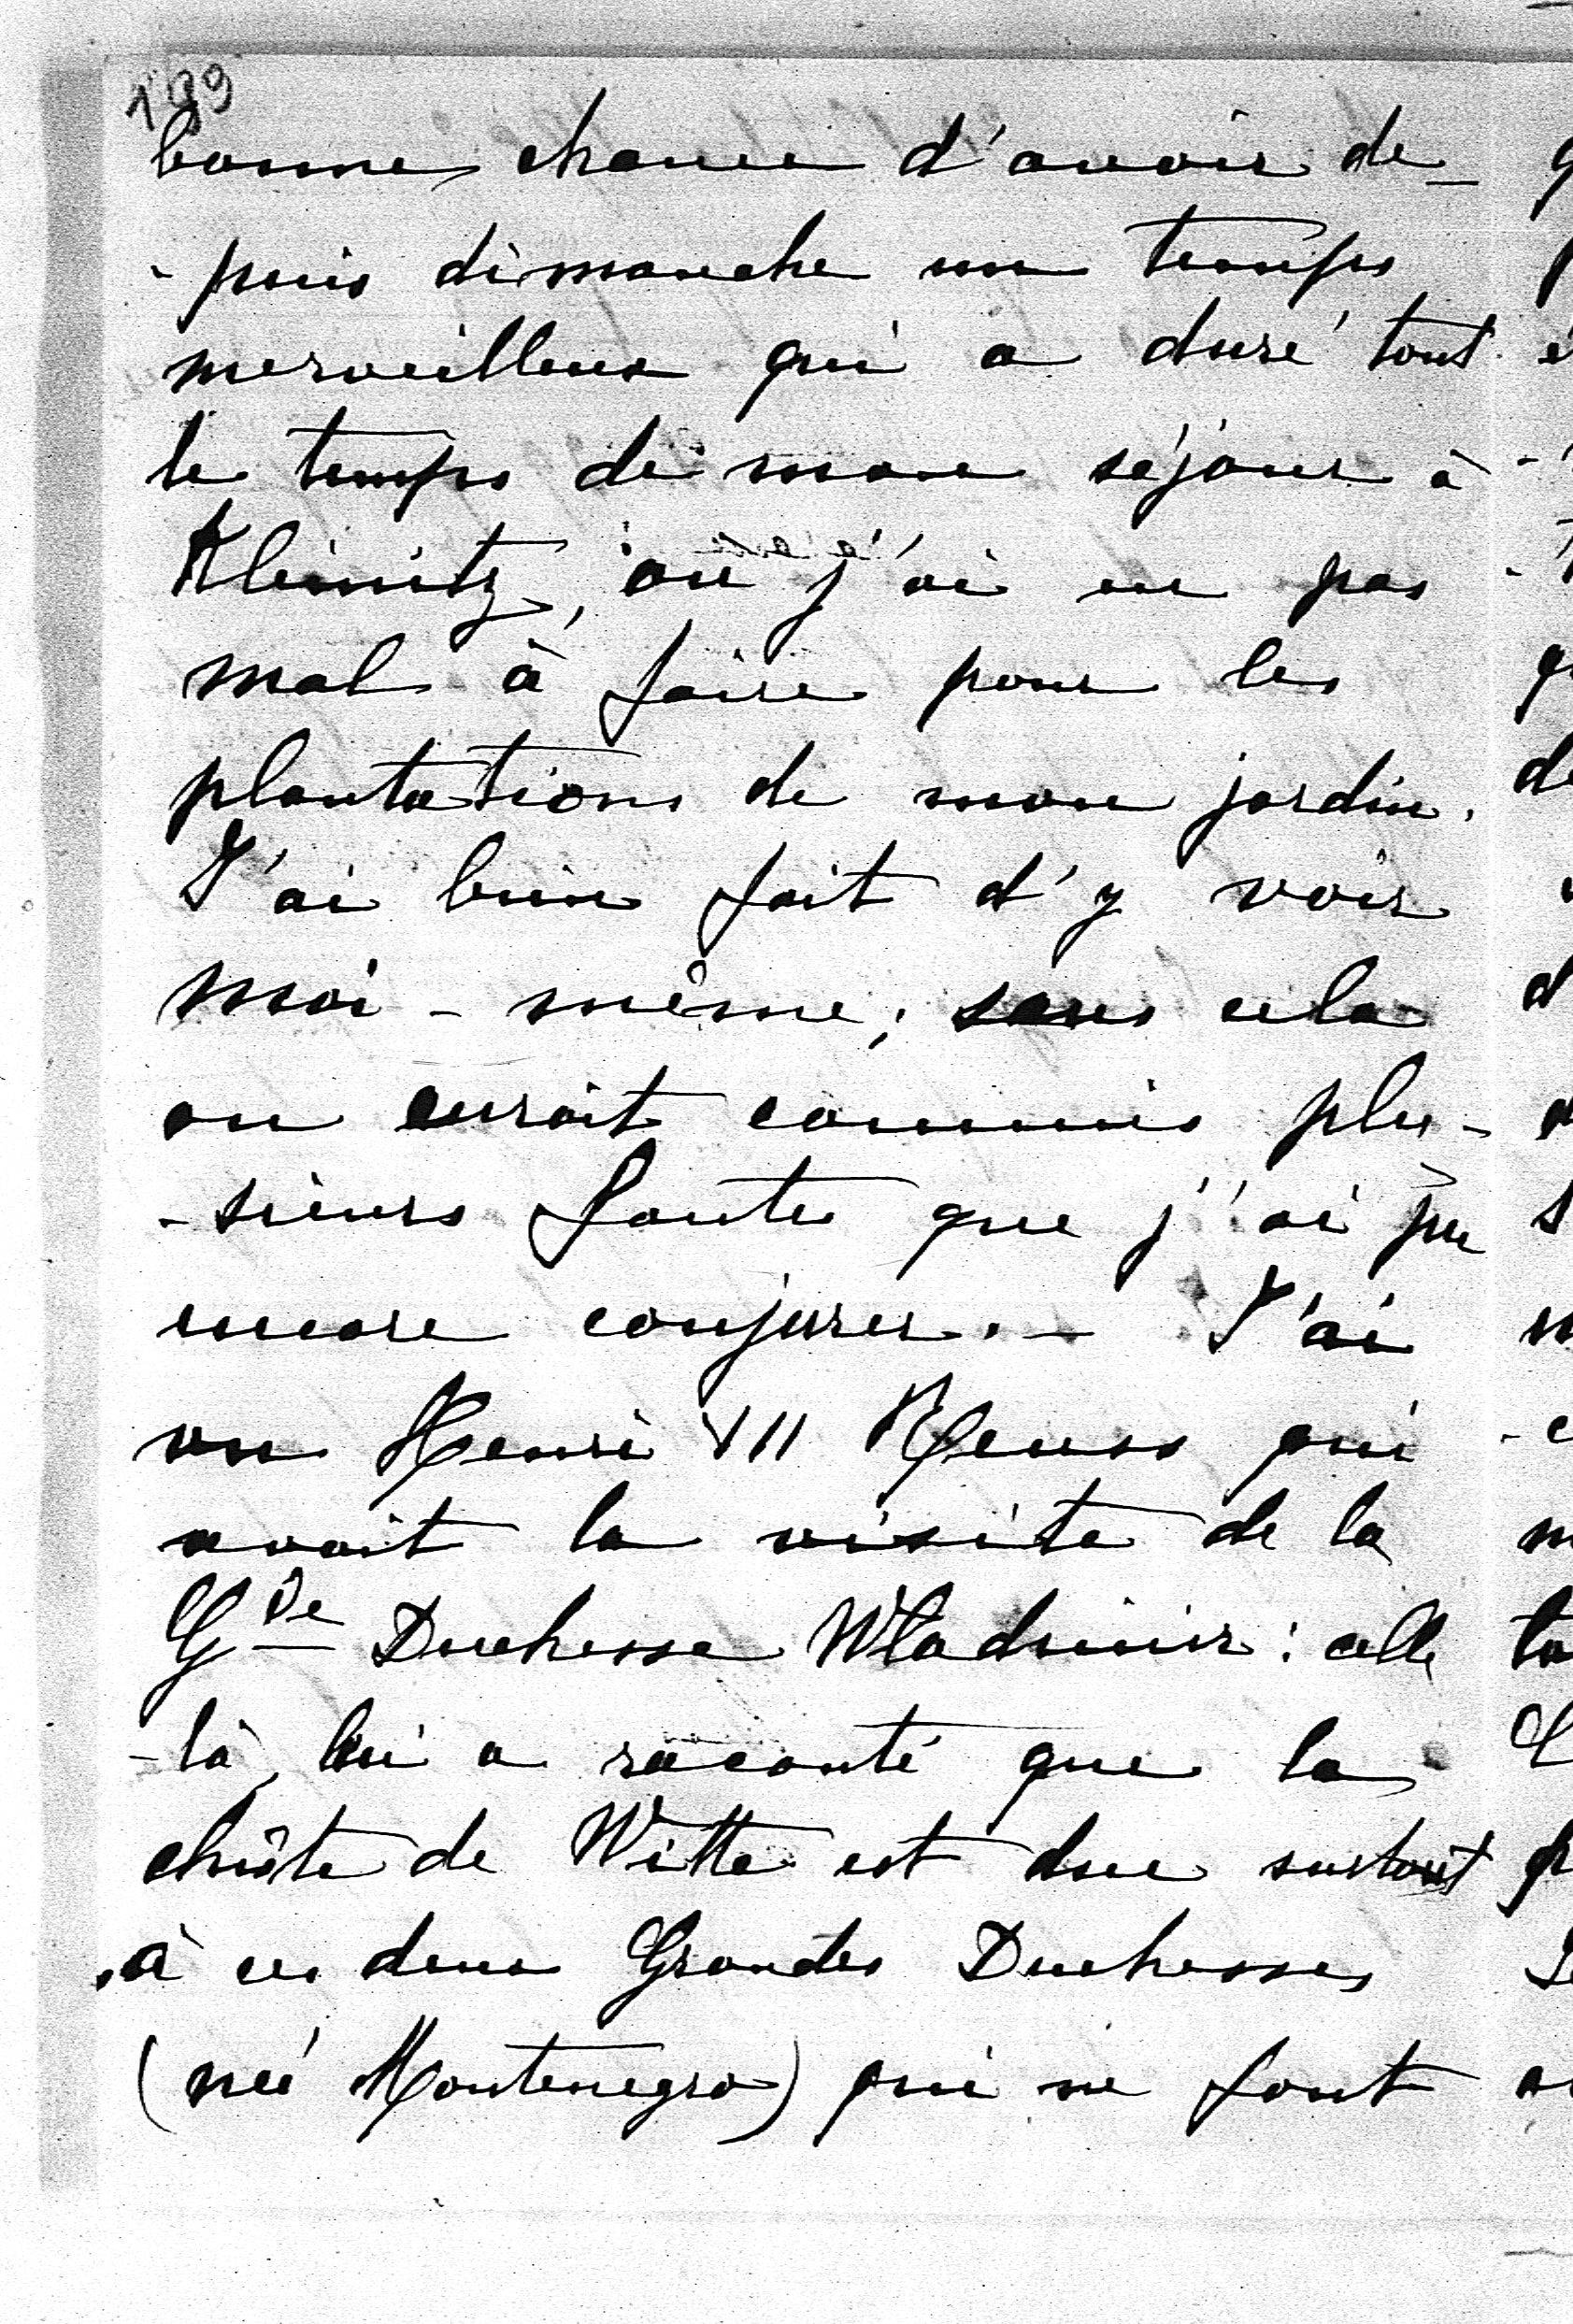 199
bonne chance d'avoir de-
-puis dimanche un temps
merveilleux qui a duré tout
le temps de mon séjour à
Kleinitz, où j'ai eu pas
mal à faire pour les
plantations de mon jardin.
J'ai bien fait d'y voir
moi-même; sans cela
on aurait commis plu-
-sieurs fautes que j'ai pu
encore conjurer. - J'ai
vu Henri VII Reuss qui
avait la visite de la
Gde Duchesse Wladimir: celle
-là, lui a raconté que la
chûte de Witte est due surtout
à ces deux Grandes Duchesses
(née Montenegro) qui ne font